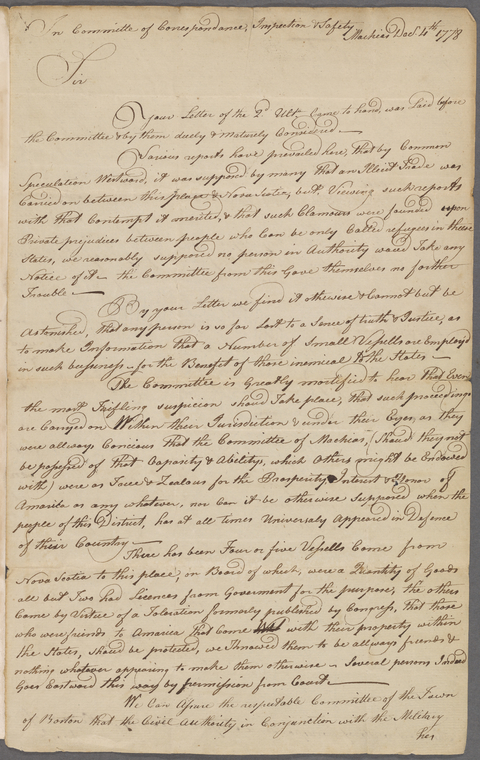 In Committe of Correspondance, Inspection & Safety
Machias Decr. 4th 1778
Sir
Your Letter of the 2d Ult. Came to hand, was Laid before
the Committee & by them duely & Maturely Considered
Various reports have prevailed here, that by Common
Speculation Westward, it was supposed by many that an Illicit Trade was
Carried on between this place & Nova Scotia, but Viewing such reports
with that Contempt it merited, & that such Clamours were founded upon
Private prejudices between people who Can be only Called refugees in these
States, we reasonably supposed no person in Authority would Take any
Notice of it — the Committee from this Gave themselves no further
Trouble —
By your Letter we find it otherwise & Cannot but be
Astonished, that any person is so far Lost to a Sence of truth & Justice, as
to make Information that a Number of Small Vessells are Employd
in such business — for the Benefit of those inemical to the States —
The Committee is Greatly mortified to hear that Even
the most Triefling suspicion should Take place, that such proceedings
are Carryed on Within their Jurisdiction & under their Eyes, as they
were allways Concious that the Committee of Machias, (Should they not
be possessed of that Capacity & Abelitys, which Others might be Endowed
with) were as Sincere & Zealous for the Prosperity Interest & Honor of
Amarica as any whatever, nor Can it be otherwise Supposed when the
people of this District, has at all times Universaly Appeared in Defence
of their Country —
There has been Four or five Vessells Come from
Nova Scotia to this place, in Board of which, were a Quantity of Goods
all but Two had Licences from Goverment for the purpose, the others
Came by Virtue of a Toleration formerly published by Congress, that those
who were friends to Amarica that Come with their property within
the States, Should be protected, we knowed them to be allways friends &
nothing whatever appearing to make them otherwise — Several persons Indeed
Goes Eastward this way by permission from Court —
We Can Assure the respectable Committee of the Town
of Boston that the Civil Authority in Conjunction with the Military
has